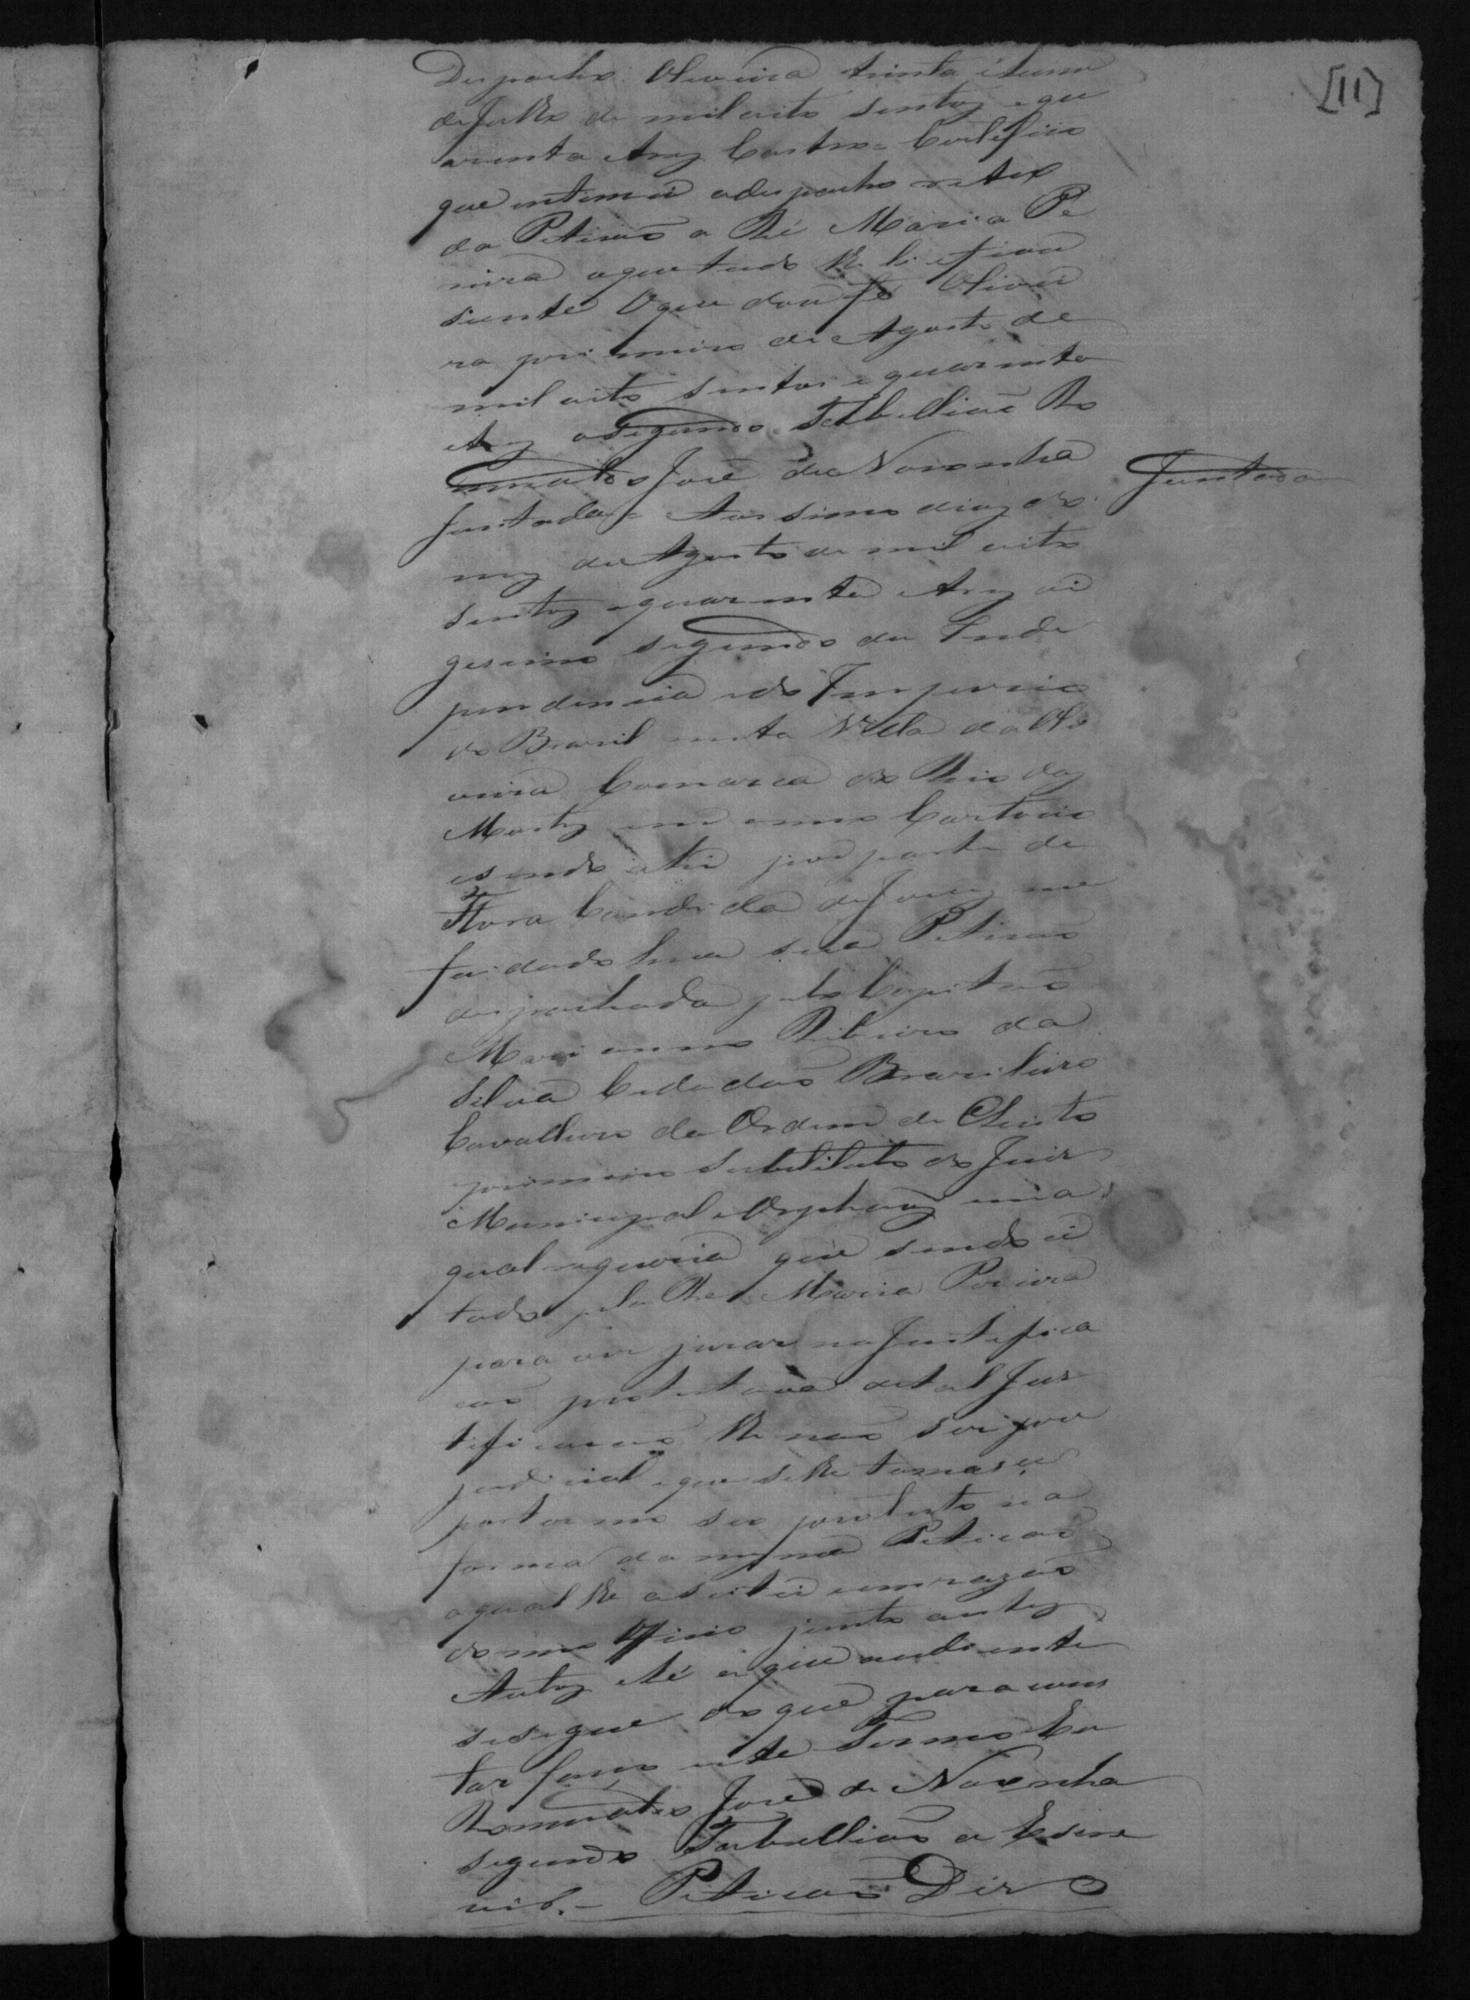 [11]
Despacho. Oliveira trinta e hum
de Julho de mil oito sentos e qu
arenta Castro = Certefico
que intimei o despacho retro
da Peticaõ a Ré Maria Pe
reira aqual tudo lhe li e ficou
siente Oque dou fé Olivei
ra primeiro de Agosto de
mil oito sentos e quarenta
o segundo Tabelliaõ Ro
mualdo José de Noronha
Juntada = Aos sinco dias do
Juntada
mez de Agosto de mil oito
sentos e quarenta e vi
gesimo segundo da Inde
pendencia e do Imperio
do Brasil nesta Villa da Oli
veira Comarca do Rio das
Mortes em meu Cartorio
e sendo ahi por parte de
Flora Candida de Jesus me
foi dado huma sua Peticaõ
despachada pelo Capitaõ
Marianno Ribeiro da
Silva Cidadaõ Brasileiro
Cavalleiro da Ordem de Christo
primeiro substituto do Juis
Municipal e Orphaõs em a
qual requeria que sendo ci
tado pela Ré Maria Pereira
para ver jurar na Justifica
caõ protestava de tal Jus
tificacaõ lhe naõ ser pre
judicial e que se lhe tomase
por termo seo protesto na
forma da mesma Peticaõ
aqual lhe aseitei em razaõ
do meo Officio junto a estes
Autos e hé a que ao diante
se segue do que para cons
tar faço este Termo Eu
Romualdo José de Noronha
segundo Tabelliaõ o Escre
vi. = Peticaõ Diz